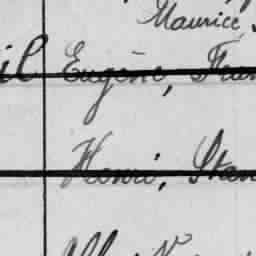 Maurice,
il Eugène, Fran
Henri, Stan